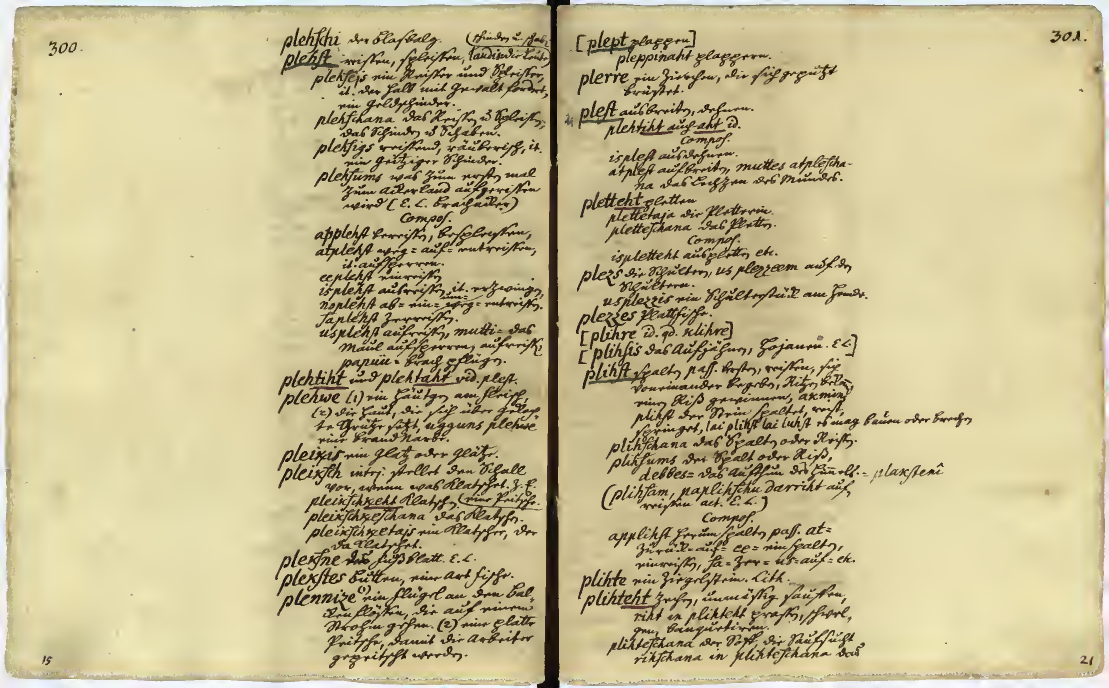 300.
plehschi der Blasbalg. (schinden u. schab;
plehst reissen, spleissen, (auch in die Länge)
plehsejs ein Reisser und Spleisser,
it. der Zoll mit Gewalt fordert,
ein Geldschinder.
plehschana das Reissen u Spleissen,
das Schinden u Schaben.
plehsigs reissend, räuberisch, it.
ein geitziger Schinder.
plehsums was zum ersten mal
zum Ackerland aufgerissen
wird (E. L. brachacker)
Compos.
applehst bereissen, besplejssen,
atplehst weg= auf= entreissen,
it. aufsperren.
eeplehst einreissen
isplehst ausreissen, it. erzwingen,
noplehst ab= ein= um= weg= entreissen.
saplehst zerreissen.
usplehst aufreissen, mutti= das
Maul aufsperren, aufreissen,
papuii= brach pflügen.
plehtiht und plehtaht vid. plest.
plehwe (1) ein Häutgen am Fleisch,
(2) die Haut, die sich über gekoch=
te Grütze setzt, ugguns plehwe
eine Brand Narbe.
pleixis ein Glatz oder Glätze.
pleiksch interj. stellet den Schall
vor, wenn was klatschet. Z. E.
pleikschkeht klatschen (eine Peitsche.
pleikschkeschana das Klatschen.
pleikschketajs ein Klatscher, der
da klatschet.
pleksne das Fussblatt. E. L.
plekstes Butten, eine Art Fische.
plennize ein Flügel an den Bal=
ken flössen, die auf einem
Strohm gehen. (2) eine platte
Peitsche, damit die Arbeiter
gepeitscht werden.
15
301.
[plept plappen]
pleppinaht plappern.
plerre ein Zierchen, die sich geputzt
brüstet.
plest ausbreiten, dehnen.
plehtiht auch aht id.
Compos.
isplest ausdehnen.
atplest aufbreiten, muttes atplescha=
na das Lechzen des Mundes.
pletteht pletten
plettetaja die Pletterin
pletteschana das Pletten.
Compos.
ispletteht ausplätten etc.
plezs die Schulter, us plezzeem auf den
Schultern.
usplezzis ein Schulterstück am Hemde.
plezzes Plattfische.
[plihre id. qd. klihre]
[plihsis das Aufziehen, E. L.]
plihst spalten pass. bersten, reissen, sich
voneinander begeben, Ritzen bekom,
einen Riss gewinnen, akmins
plihst der Stein spaltet, reist,
springet, lai plihst lai luhst es mag bauen oder brechen
plihschana das Spalten oder Reissen.
plihsums der Spalt oder Riss,
debbes= das Aufthun des Himels. = plaksteni
(plihsam, paplihschu darriht auf=
reissen act. E. L.)
Compos.
applihst herum spalten pass. at=
zurück= auf= ee= ein spalten,
einreissen, sa= zer= us= auf= etc.
plihte ein Ziegelstein. Lith.
plihteht zechen, unmässig sauffen,
riht in plihteht prassen, schwel=
gen, banquetiren.
plihteschana der Soff, die Saufsucht
rihschana in plihteschana das
21